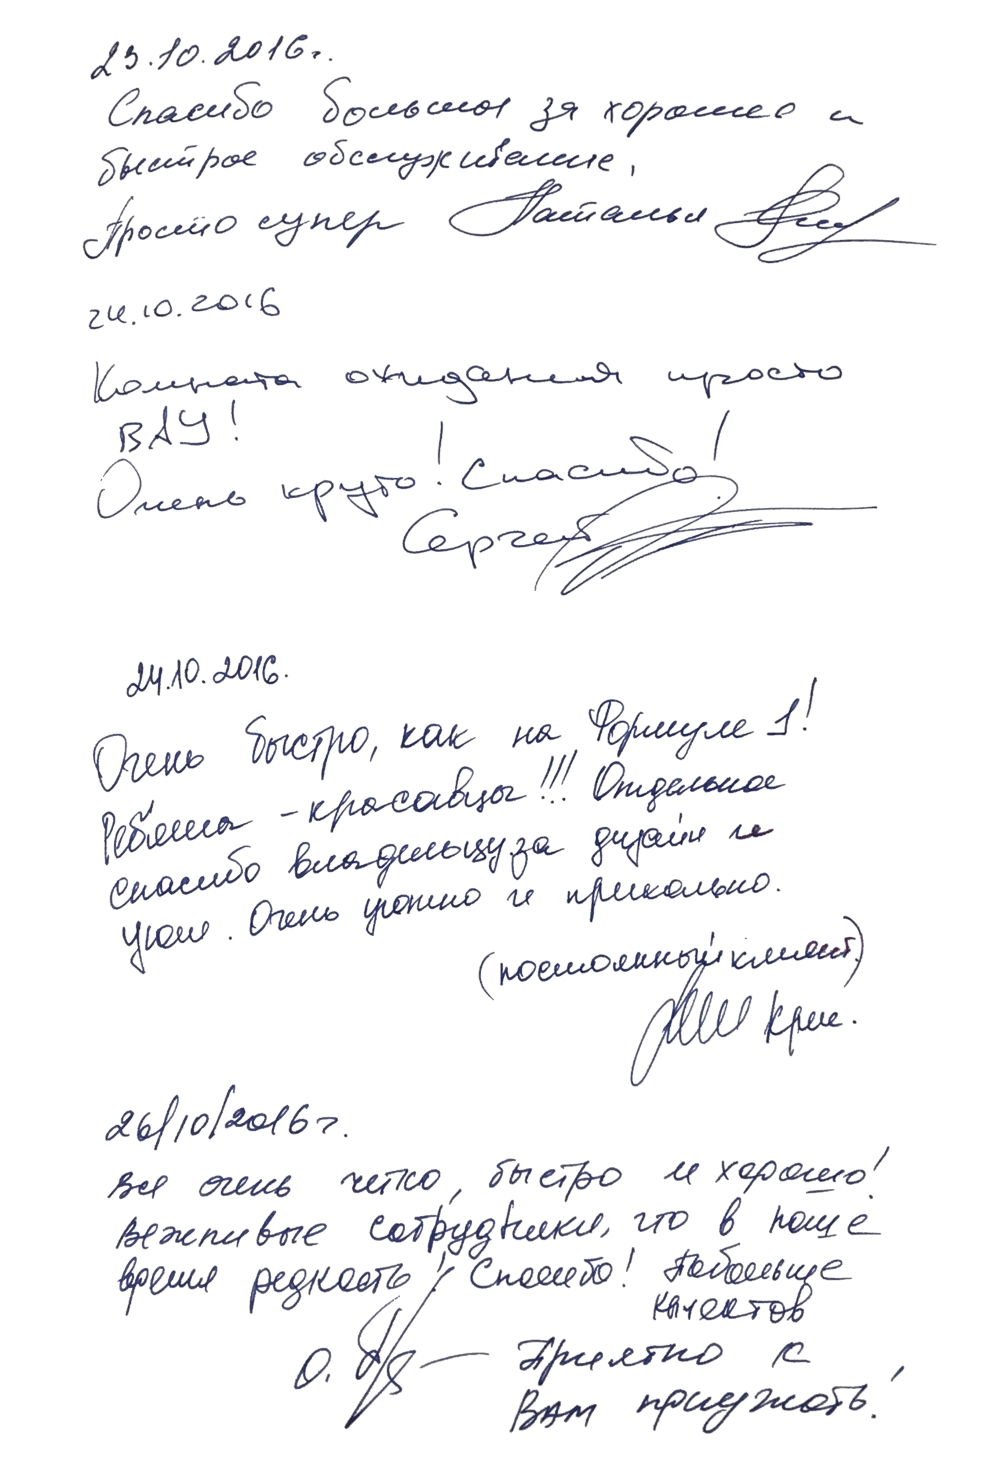 23.10.2016г.
Спасибо большое за хорошее и
быстрое обслуживание,
Просто супер Наталья
24.10.2016
Комната ожидания просто
ВАУ!
Очень круто! Спасибо!
Сергей
24.10.2016.
Очень быстро, как на Формуле 1!
Ребята - красавцы!!! Отдельное
спасибо владельцу за дизайн и
уют. Очень уютно и прикольно.
(постоянный клиент.)
Крис.
26/10/2016г.
Все очень четко, быстро и хорошо!
Вежливые сотрудники, что в наше
время редкость! Спасибо! Побольше
клиентов
О. Приятно к
ВАМ приезжать!